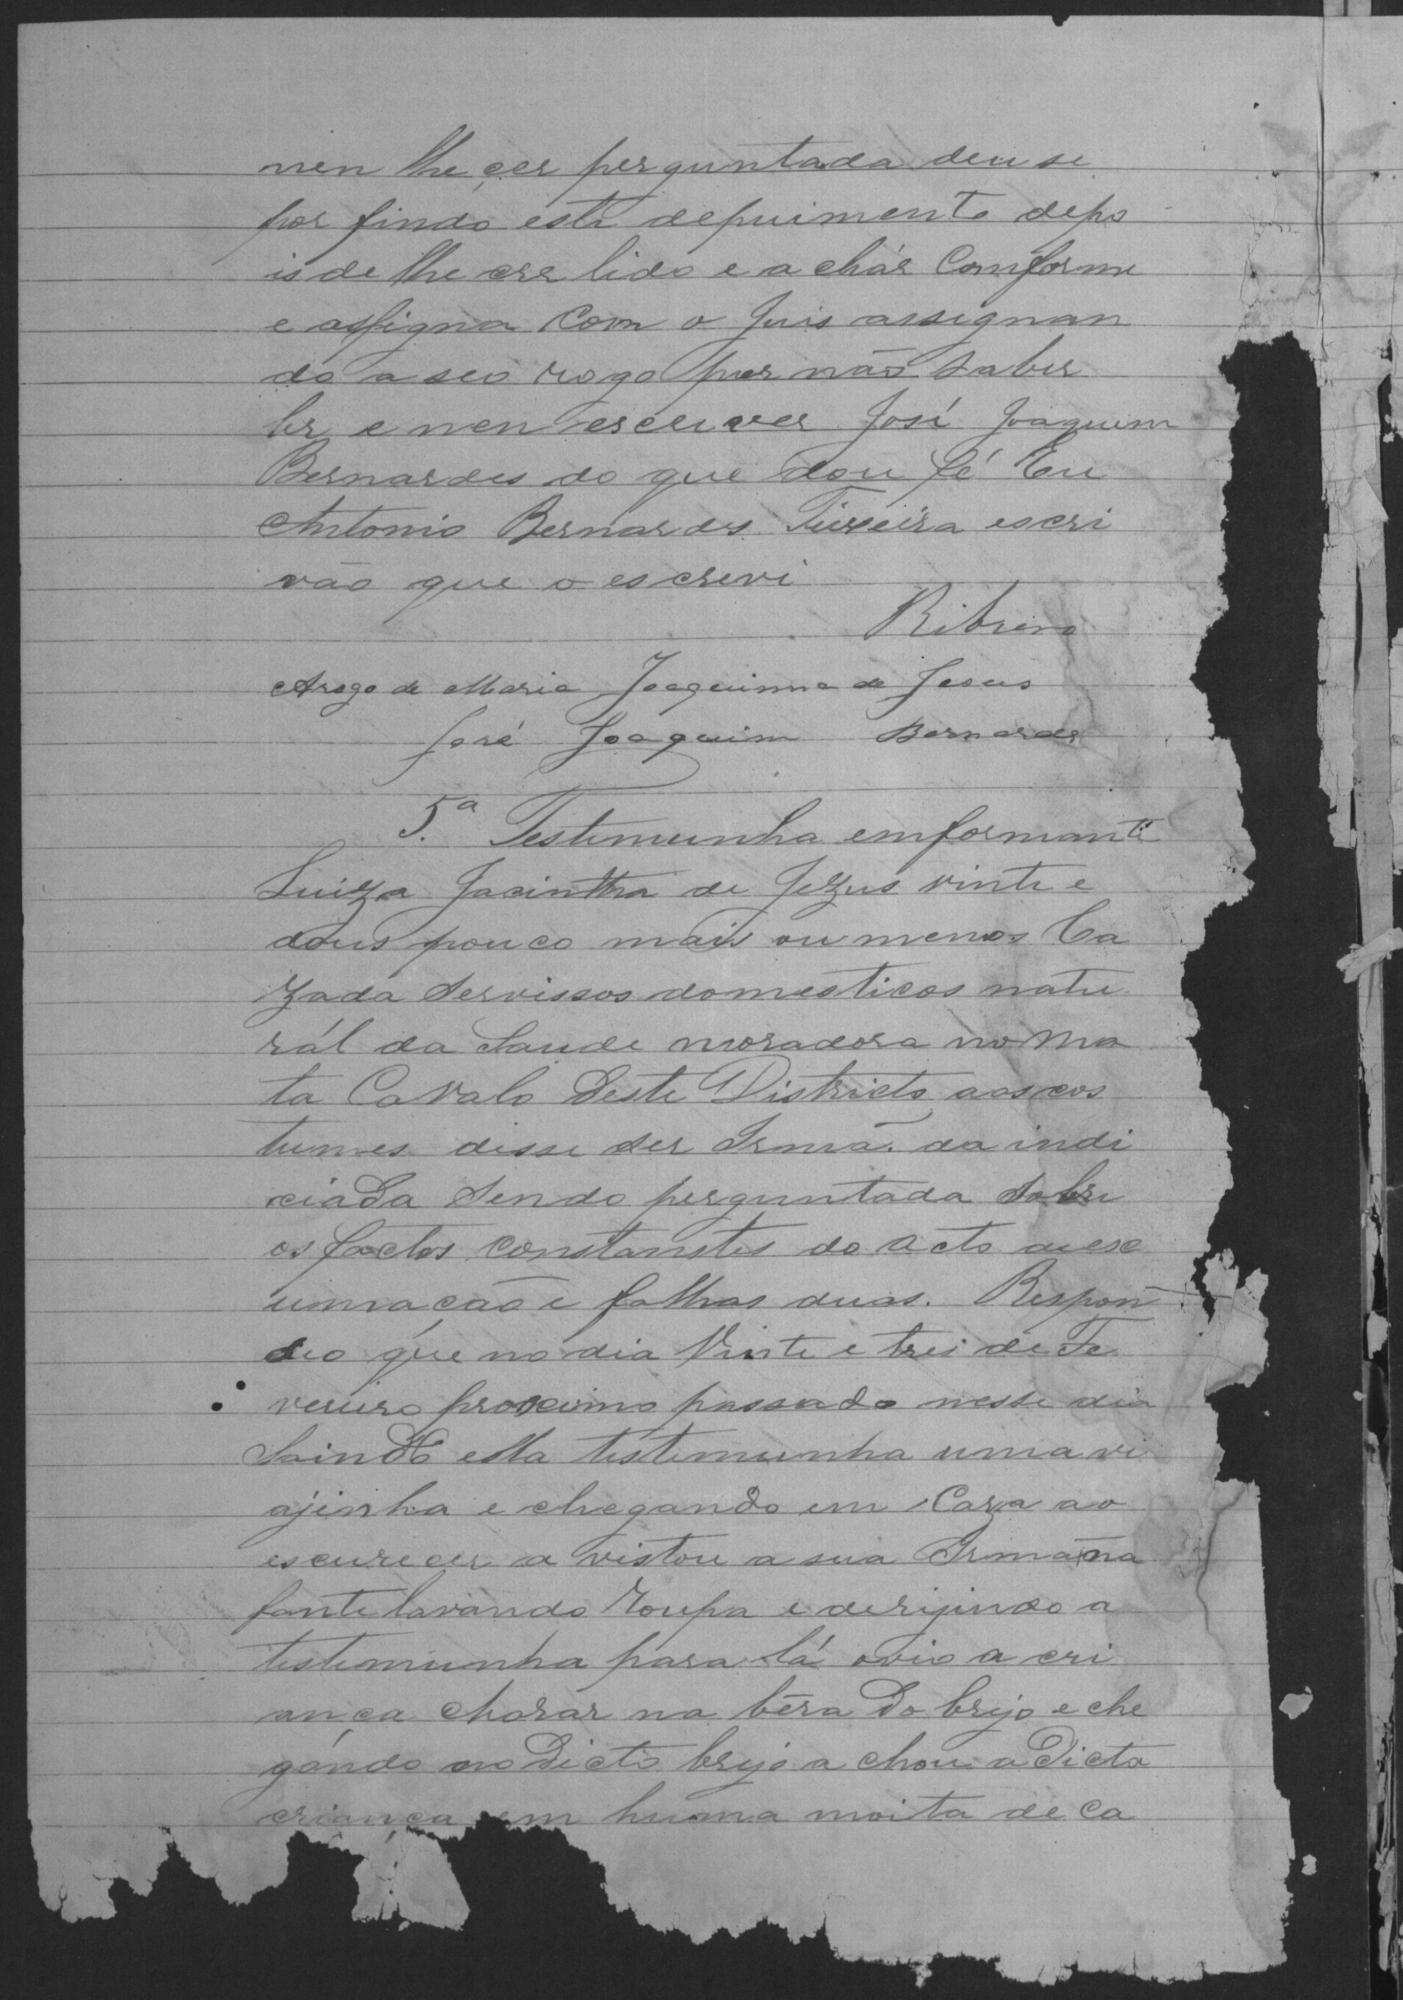 nen lhe çer perguntada deu se
por findo este depuimento depo
is de lhe cer lido e a chár Comforme
e assigna Com o Juis assignan
do a seo rogo por não saber
ler e nen escrever José Joaquim
Bernardes do que dou fé Eu
Antonio Bernardes Teixeira escri
vão que o escrevi
Ribeiro
Arogo de Maria Joaquinna de Jesus
José Joaquim Bernardes
5.ª Testemunha emformante
Luiza Jacintha de Jezus vinte e
dous pouco mais ou menos Ca
zada Servissos domesticos natu
rál da Saude moradora no Ma
ta Cavalo deste Districto aos cos
tumes disse ser Irmã da indi
ciada Sendo perguntada Sobre
os factos constantes do acto de exc
umação e folhas duas. Respon
deo que no dia Vinte e treis de Fe
vereiro proximo passado nesse dia
Saindo ella testemunha uma vi
ajinha e chegando em Caza ao
escurecer a vistou a sua Irmã na
fonte lavando roupa e derijindo a
testemunha para lá ovio a cri
ança chorar na bêra do brejo e che
gando no dicto brejo a chou a dicta
criança em huma moita de ca